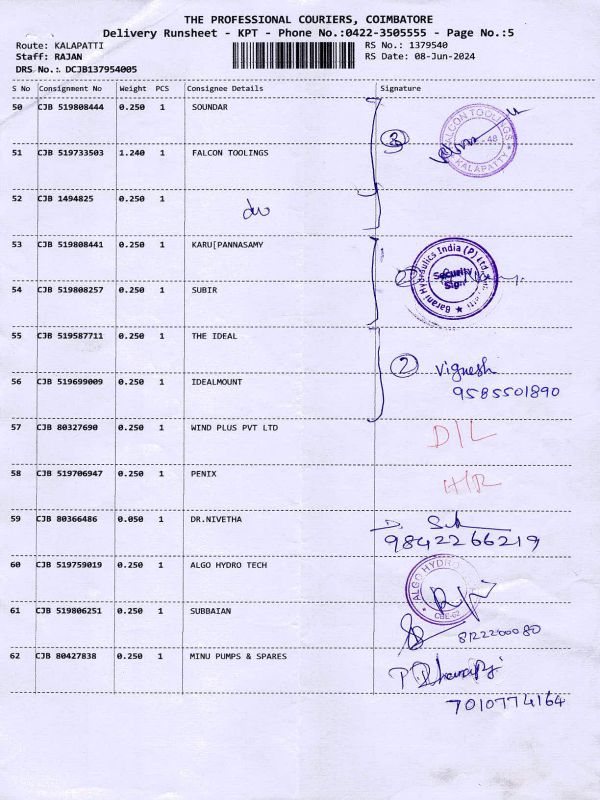 THE PROFESSIONAL COURIERS, COIMBATORE
Delivery Runsheet - KPT - Phone No.:0422-3505555 - Page No.:5
Route: KALAPATTI
Staff: RAJAN
DRS No.: DCJB137954005
RS No.: 1379540
RS Date: 08-Jun-2024
S No Consignment No Weight PCS Consignee Details Signature
50 CJB 519808444 0.250 1 SOUNDAR
3
FALCON TOOLINGS
KALAPATTY
51 CJB 519733503 1.240 1 FALCON TOOLINGS
52 CJB 1494825 0.250 1
do
53 CJB 519808441 0.250 1 KARU[PANNASAMY
2
Barani Hydraulics India (P) Ltd.
Security
Sign
54 CJB 519808257 0.250 1 SUBIR
55 CJB 519587711 0.250 1 THE IDEAL
2 Vignesh
56 CJB 519699009 0.250 1 IDEALMOUNT
9585501890
57 CJB 80327690 0.250 1 WIND PLUS PVT LTD D/L
58 CJB 519706947 0.250 1 PENIX H/R
59 CJB 80366486 0.050 1 DR.NIVETHA
9842266219
60 CJB 519759019 0.250 1 ALGO HYDRO TECH
ALGO HYDRO
61 CJB 519806251 0.250 1 SUBBAIAN
8122200080
62 CJB 80427838 0.250 1 MINU PUMPS & SPARES
7010774164